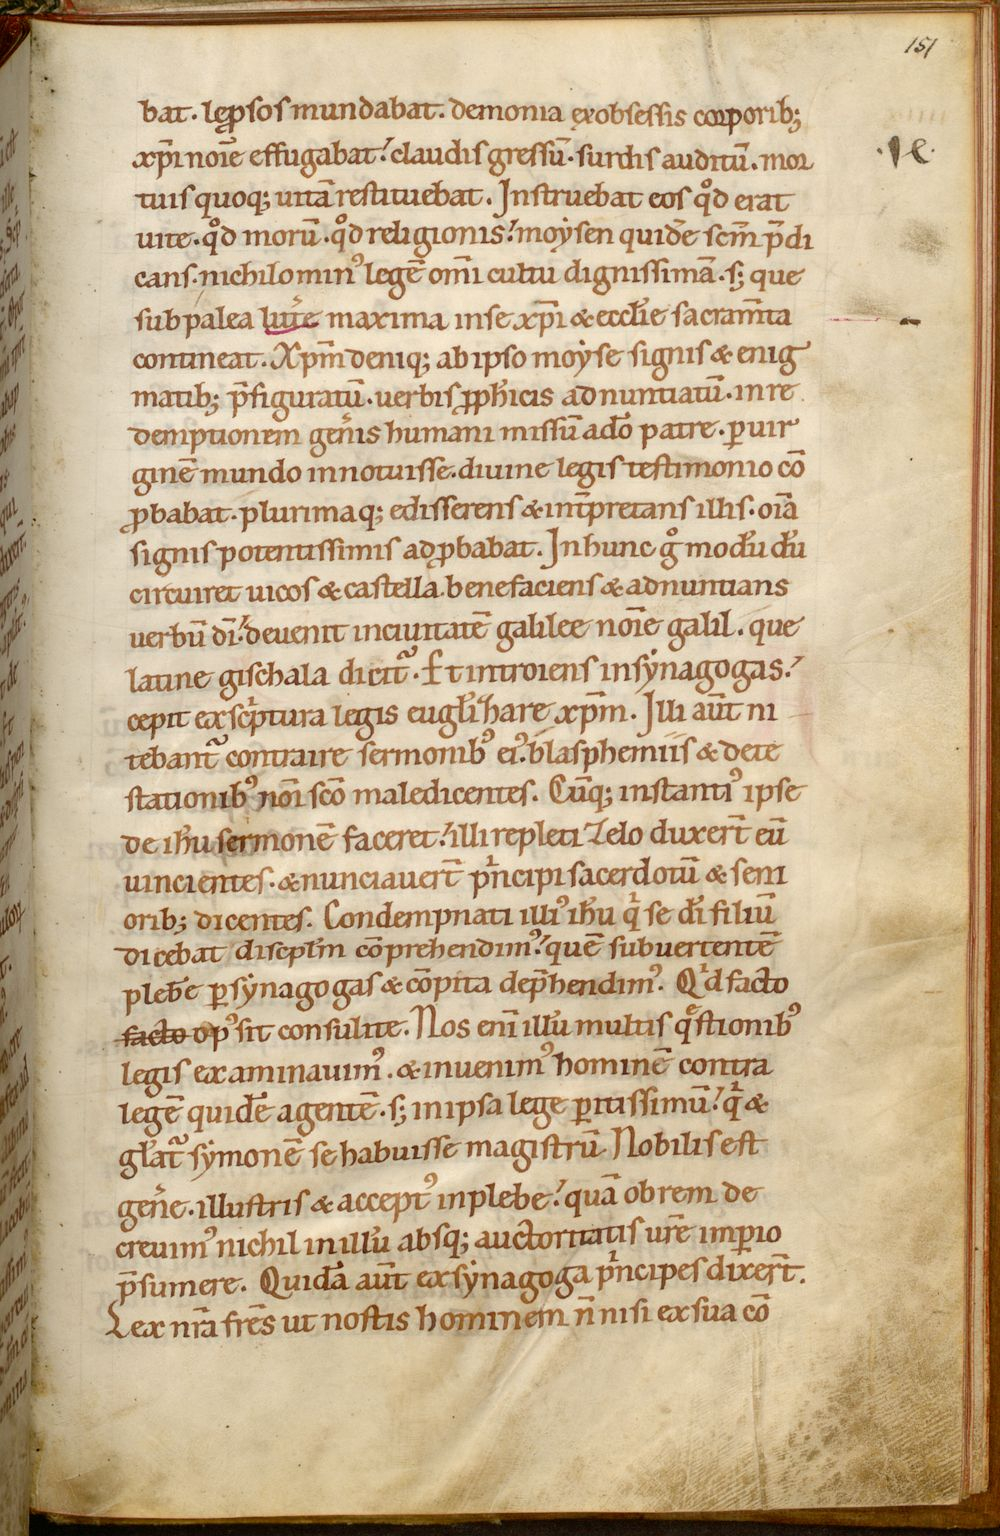 151
bat. lep̱sos mundabat. demonia ęxobsessis corporib;
xp̄i noīe effugabat. claudis gressū. surdis auditū. mor
tuis quoq; uitā restituebat. Instruebat eos qͦd erat
uite. qͦd morū. qͦd religionis. moẏsen quidē scm̄ p̄di
cans. nichilominꝰ legē om̄i cultu dignissimā. s; que
sub palea litt̄e maxima in se xp̄i & eccłie sacram̄ta
contineat. Xp̄m deniq; ab ipso moẏse signis & enig
matib; p̄figuratū. uerbis ꝓph̄icis adnuntiatū. in re
demptionem gen̄is humani missū a dō patre. ꝑ uir
ginē mundo innotuisse. diuine legis testimonio cō
ꝓbabat. plurimaq; edisserens & int̄pretans illis. oīa
signis potentissimis adꝓbabat. In hunc gͦ modū dū
circuiret uicos & castella benefaciens & adnuntians
uerbū dī. deuenit in ciuitatē galilee noīe galil. que
latine gischala dicit᷑. Et introiens in sẏnagogas.
cepit ex scͥptura legis eugłiħare xp̄m. Illi aūt ni
tebant᷑ contraire sermonibꝰ eiꝰ. blasphemiis & dete
stationibꝰ nōi scō maledicentes. Cūq; instantiꝰ ipse
de ihu sermonē faceret. illi repleti zelo duxer̄t eū
uincientes. & nunciauer̄t pͥncipi sacerdotū & seni
orib; dicentes. Condempnati illiꝰ ihu qͥ se dī filiū
dicebat discipłm cōprehendimꝰ. quē subuertentē
plebē ꝑ sẏnagogas & cōpita dep̄hendimꝰ. Qͥd facto
facto opꝰ sit consulite. Nos enī illū multis qͣstionibꝰ
legis examinauimꝰ. & inuenimꝰ hominē contra
legē quidē agentē. s; in ipsa lege ꝑitissimū. qͥ &
głat᷑ sẏmonē se habuisse magistrū. Nobilis est
gen̄e. illustris & acceptꝰ in plebe. quā ob rem de
creuimꝰ nichil in illū absq; auctoritatis ur̄e imꝑio
p̄sumere. Quidā aūt ex sẏnagoga pͥncipes dixer̄t.
Lex nr̄a fr̄es ut nostis hominem n̄ nisi ex sua cō